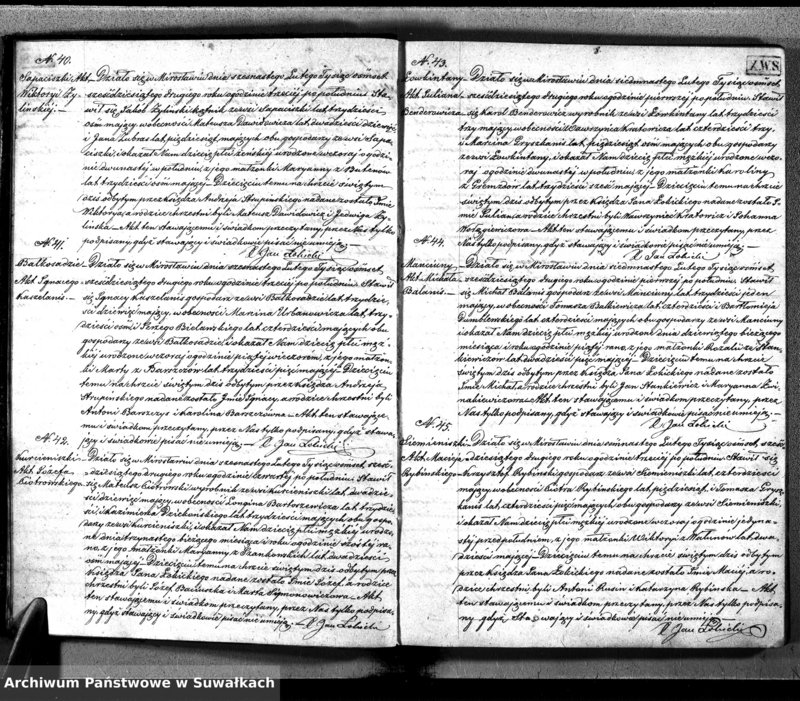 N. 40.
Sapaciszki Akt
Wiktoryi Ży-
lińskiej.
Działo się w Mirosławiu dnia szesnastego Lutego Tysiąc ośmset
sześćdziesiątego drugiego roku o godzinie trzeciej po południu Sta-
wił się Jakób Żyliński zewsi Sapaciszki lat trzydzieści
ośm mający w obecności Mateusza Dawidowicza lat dwadzieścia dziewięć
i Jana lat pięćdziesiąt mających obu gospodarzy zewsi Sapa-
ciszki i okazał Nam dziecię płci żeńskiej urodzone wczoraj o godzi-
nie dwunastej w południe z jego małżonki Maryanny z
lat trzydzieści ośm mającej Dziecięciu temu na chrzcie świętym
dziś odbytym przez Księdza Andrzeja Strupińskiego nadane zostało Imie
Wiktorya, a rodzice chrzestni byli Mateusz Dawidowicz i Jadwiga Ży-
lińska Akt ten stawającemu i świadkom przeczytany, przez Nas tylko
podpisany, gdyż stawający i świadkowie pisać nie umieją.
X. Jan Łobicki
N. 41.
Balkosadzie
Akt Ignacego
Kaszelanis.
Działo się w Mirosławiu dnia szesnastego Lutego Tysiąc ośmset
sześćdziesiątego drugiego roku o godzinie trzeciej po południu Stawił
się Ignacy Kaszelanis gospodarz zewsi Balkosadzie lat trzydzie-
ści dziewięć mający, w obecności Marcina Urbanowicza lat trzy-
dzieści ośm i Jerzego Bielańskiego lat czterdzieści mających obu
gospodarzy zewsi Balkosadzie i okazał Nam dziecię płci mę-
zkiej urodzone wczoraj o godzinie piątej wieczorem, z jego małżon-
ki Marty z lat trzydzieści pięć mającej Dziecięciu
temu na chrzcie świętym dziś odbytym przez Księdza Andrzeja
Strupińskiego nadane zostało Imie Ignacy, a rodzice chrzestni byli
Antoni i Karolina Akt ten stawające-
mu i świadkom przeczytany, przez Nas tylko podpisany, gdyż stawa-
jący i świadkowie pisać nie umieją.
X. Jan Łobicki
N. 42.
Kurcieniszki
Akt Józefa
Piotrowskiego
Działo się w Mirosławiu dnia szesnastego Lutego Tysiąc ośmset, sześć-
dziesiątego drugiego roku o godzinie czwartej po południu Stawił
się Mateusz Piotrowski wyrobnik zewsi Kurcieniszki lat dwadzie-
ścia dziewięć mający, w obecności Longina Bartoszewicza lat trzydzie-
ści i Kazimierza lat trzydzieści mających obu gospo-
darzy zewsi Kurcieniszki, i okazał Nam dziecię płci męzkiej urodzo-
ne dnia trzynastego bieżącego miesiąca i roku o godzinie szóstej ra-
no z jego małżonki Maryanny z lat dwadzieścia
ośm mającej Dziecięciu temu na chrzcie świętym dziś odbytym przez
Księdza Jana Łobickiego nadane zostało Imie Józef, a rodzice
chrzestni byli Józef i Marta Akt
ten stawającemu i świadkom przeczytany, przez Nas tylko podpisa-
ny gdyż stawający i świadkowie pisać nie umieją.
X. Jan Łobicki
N. 43.
Akt Juliana
Benderowicza
Działo się w Mirosławiu dnia siedmnastego Lutego Tysiąc ośmset
sześćdziesiątego drugiego roku o godzinie pierwszej po południu Stawił
się Karol Benderowicz wyrobnik zewsi lat trzydzieści
trzy mający w obecności Wawrzyńca lat czterdzieści trzy
i Marcina lat pięćdziesiąt ośm mających obu gospodarzy
zewsi i okazał Nam dziecię płci męzkiej urodzone wczo-
raj o godzinie dwunastej w południe z jego małżonki Karoliny
z lat trzydzieści sześć mającej Dziecięciu temu na chrzcie
świętym dziś odbytym przez Księdza Jana Łobickiego nadane zostało I-
mie Julian, a rodzice chrzestni byli Wawrzyniec i Johanna
Akt ten stawającemu i świadkom przeczytany, przez
Nas tylko podpisany, gdyż stawający i świadkowie pisać nie umieją.
X. Jan Łobicki
N. 44.
Manciuny
Akt Michała
Balanis.
Działo się w Mirosławiu dnia siedmnastego Lutego Tysiąc ośmset
sześćdziesiątego drugiego roku o godzinie pierwszej po południu Stawił
się Michał Balanis gospodarz zewsi Mańciuny lat trzydzieści jeden
mający, w obecności Tomasza lat czterdzieści i Bartłomieja
lat czterdzieści mających obu gospodarzy zewsi Mańciuny
i okazał Nam dziecię płci męzkiej urodzone dnia dziewiątego bieżącego
miesiąca i roku o godzinie piątej rano z jego małżonki Rozalii ze Stan-
kiewiczów lat dwadzieścia pięć mającej Dziecięciu temu na chrzcie
świętym dziś odbytym przez Księdza Jana Łobickiego nadane zostało
Imie Michał a rodzice chrzestni byli Jan Stankiewicz i Maryanna
Akt ten stawającemu i świadkom przeczytany, przez
Nas tylko podpisany gdyż stawający i świadkowie pisać nie umieją.
X. Jan Łobicki
N. 45.
Siemieniszki
Akt Macieja
Rybińskiego
Działo się w Mirosławiu dnia ośmnastego Lutego Tysiąc ośmset, sześć-
dziesiątego drugiego roku o godzinie trzeciej po południu Stawił się
Krzysztof Rybiński gospodarz zewsi Siemieniszki lat, czterdzieści
mający, w obecności Piotra Rybińskiego lat pięćdziesiąt, i Tomasza
lat czterdzieści pięć mających obu gospodarzy zewsi Siemieniszki
i okazał Nam dziecię płci męzkiej urodzone wczoraj o godzinie jedyna-
stej przed południem, z jego małżonki Wiktoryi z lat dwa-
dzieścia mającej Dziecięciu temu na chrzcie świętym dziś odbytym
przez Księdza Jana Łobickiego nadane zostało Imie Maciej a ro-
dzice chrzestni byli Antoni Rusin i Katarzyna Rybińska Akt
ten stawającemu i świadkom przeczytany, przez Nas tylko podpisa-
ny, gdyż stawający i świadkowie pisać nie umieją.
X. Jan Łobicki
Archiwum Państwowe w Suwałkach